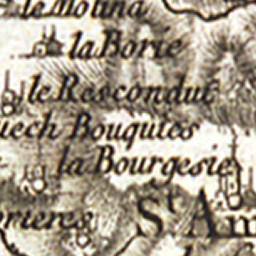 le Molina
la Borie
le Rescondut
uech Bouquies
la Bourgesie
orieres
St Am